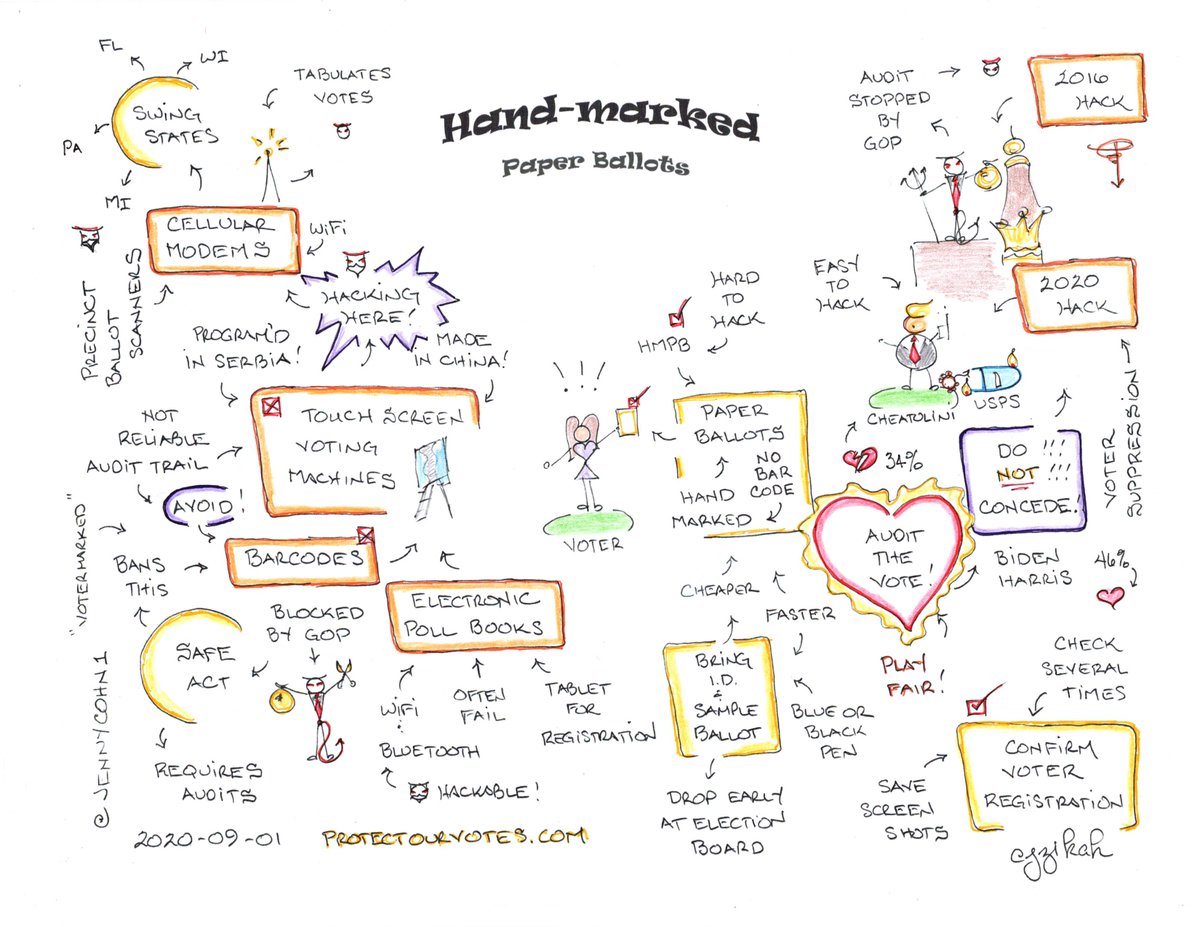 Hand-marked
Paper Ballots
FL
WI
SWING
STATES
PA
MI
TABULATES
VOTES
CELLULAR
MODEMS
WiFi
PRECINCT
BALLOT
SCANNERS
HACKING
HERE!
PROGRAM'D
IN SERBIA!
MADE
IN CHINA!
TOUCH SCREEN
VOTING
MACHINES
NOT
RELIABLE
AUDIT TRAIL
AVOID!
"VOTERMARKED"
BANS
THIS
BARCODES
ELECTRONIC
POLL BOOKS
BLOCKED
BY GOP
SAFE
ACT
REQUIRES
AUDITS
WiFi
BLUETOOTH
HACKABLE!
OFTEN
FAIL
TABLET
FOR
REGISTRATION
@JENNYCOHN1
2020-09-01
PROTECTOURVOTES.COM
!!!
VOTER
HARD
TO
HACK
HMPB
EASY
TO
HACK
PAPER
BALLOTS
NO
BAR
CODE
HAND
MARKED
CHEAPER
FASTER
BRING
I.D.
&
SAMPLE
BALLOT
BLUE OR
BLACK
PEN
DROP EARLY
AT ELECTION
BOARD
AUDIT
STOPPED
BY
GOP
2016
HACK
2020
HACK
CHEATOLINI
USPS
34%
VOTER
SUPPRESSION
DO !!!
NOT !!!
CONCEDE!
AUDIT
THE
VOTE!
BIDEN
HARRIS
46%
PLAY
FAIR!
CHECK
SEVERAL
TIMES
CONFIRM
VOTER
REGISTRATION
SAVE
SCREEN
SHOTS
cjzikah